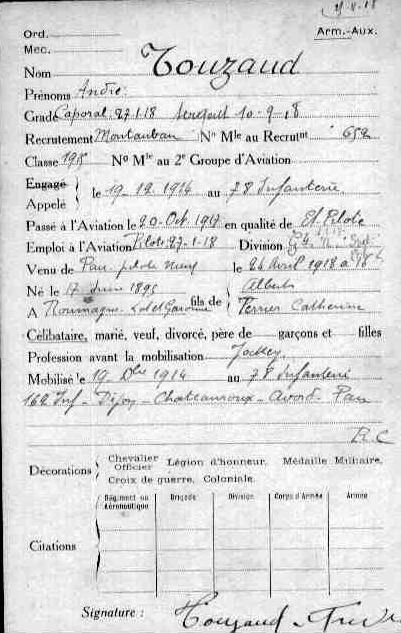 Ord.
Arm.-Aux.
Mec.
Nom Touzaud
Prénoms André
Grade Caporal 27.1.18 Sergent 10-9.18
Recrutement Montauban No Mle au Recrutnt 652
Classe 1915 No Mle au 2e Groupe d'Aviation
Engagé
Appelé } le 19-12 1914 au 78 Infanterie
Passé à l'Aviation le 20-Oct. 1917 en qualité de El Pilote
Emploi à l'Aviation Pilote 27-1-18 Division
Venu de Pau pilote le 26 Avril 1918
Né le 17 Juin 1895 Albert
A Roumagne Lot et Garonne fils de { Perrier Catherine
Célibataire, marié, veuf, divorcé, père de garçons et filles
Profession avant la mobilisation Jockey
Mobilisé le 19 Dbre 1914 au 78 Infanterie
162 Inf - Dijon - Chateauroux - Avord - Pau
Décorations { Chevalier Officier Légion d'honneur, Médaille Militaire,
Croix de guerre, Coloniale.
Citations
Régiment ou Aéronautique Brigade Division Corps d'Armée Armée
Signature : Touzaud